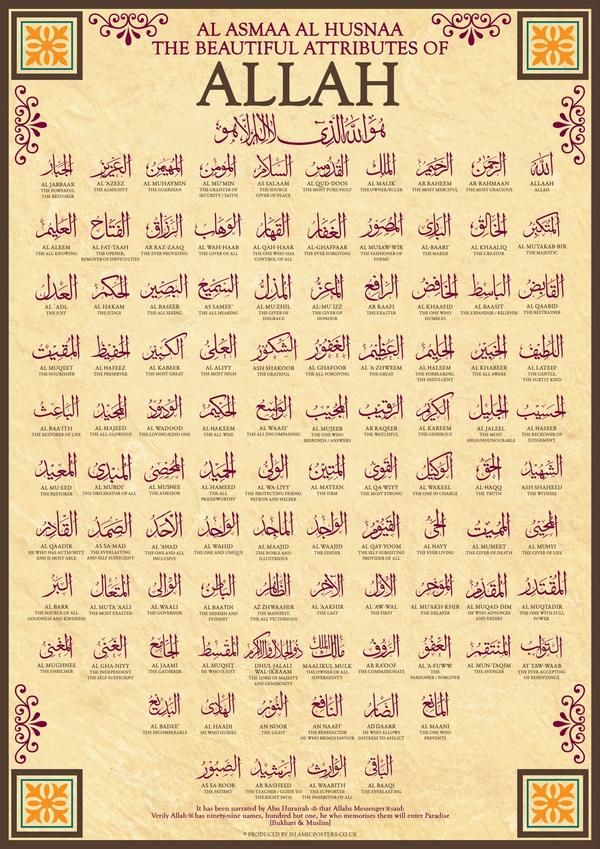 AL ASMAA AL HUSNAA
THE BEAUTIFUL ATTRIBUTES OF
ALLAH
هو الله الذي لا إله إلا هو
الله
ALLAAH
ALLAH
الرحمن
AR-RAHMAAN
THE MOST GRACIOUS
الرحيم
AR RAHEEM
THE MOST MERCIFUL
الملك
AL MALIK
THE OWNER/RULER
القدوس
AL QUD-DOOS
THE MOST PURE/HOLY
السلام
AS SALAAM
THE SOURCE
GIVER OF PEACE
المؤمن
AL MU'MIN
THE GRANTER OF
SECURITY / FAITH
المهيمن
AL MUHAYMIN
THE GUARDIAN
العزيز
AL 'AZEEZ
THE ALMIGHTY
الجبار
AL JABBAAR
THE POWERFUL
THE RESTORER
المتكبر
AL MUTAKAB-BIR
THE MAJESTIC
الخالق
AL KHAALIQ
THE CREATOR
البارئ
AL-BAARI'
THE MAKER
المصور
AL MUSAW-WIR
THE FASHIONER OF
FORMS
الغفار
AL-GHAFFAAR
THE EVER FORGIVING
القهار
AL QAH-HAAR
THE ONE WHO HAS
CONTROL OF ALL
الوهاب
AL WAH-HAAB
THE GIVER OF ALL
الرزاق
AR RAZ-ZAAQ
THE EVER PROVIDING
الفتاح
AL FAT-TAAH
THE OPENER,
REMOVER OF DIFFICULTIES
العليم
AL ALEEM
THE ALL KNOWING
القابض
AL QAABID
THE RESTRAINER
الباسط
AL BAASIT
THE EXPANDER / RELIEVER
الخافض
AL KHAAFID
THE ONE WHO
HUMBLES
الرافع
AR RAAFI
THE EXALTER
المعز
AL-MU'IZZ
THE GIVER OF
HONOUR
المذل
AL MU-ZHIL
THE GIVER OF
DISGRACE
السميع
AS SAMEE'
THE ALL HEARING
البصير
AL BASEER
THE ALL SEEING
الحكم
AL HAKAM
THE JUDGE
العدل
AL 'ADL
THE JUST
اللطيف
AL LATEEF
THE GENTLE,
THE SUBTLY KIND
الخبير
AL KHABEER
THE ALL AWARE
الحليم
AL HALEEM
THE FORBEARING,
THE INDULGENT
العظيم
AL 'A-ZHWEEM
THE GREAT
الغفور
AL GHAFOOR
THE ALL FORGIVING
الشكور
ASH SHAKOOR
THE GRATEFUL
العلي
AL ALIYY
THE MOST HIGH
الكبير
AL KABEER
THE MOST GREAT
الحفيظ
AL HAFEEZ
THE PRESERVER
المقيت
AL MUQEET
THE NOURISHER
الحسيب
AL HASEEB
THE RECKONER OF
JUDGEMENT
الجليل
AL JALEEL
THE MOST
HIGH/HONOURABLE
الكريم
AL KAREEM
THE GENEROUS
الرقيب
AR RAQEEB
THE WATCHFUL
المجيب
AL MUJEEB
THE ONE WHO
RESPONDS / ANSWERS
الواسع
AL WAASI'
THE ALL ENCOMPASSING
الحكيم
AL HAKEEM
THE ALL WISE
الودود
AL WADOOD
THE LOVING/KIND ONE
المجيد
AL MAJEED
THE ALL GLORIOUS
الباعث
AL BAA'ITH
THE RESTORER OF LIFE
الشهيد
ASH SHAHEED
THE WITNESS
الحق
AL-HAQQ
THE TRUTH
الوكيل
AL WAKEEL
THE ONE IN CHARGE
القوي
AL QA-WIYY
THE MOST STRONG
المتين
AL MATEEN
THE FIRM
الولي
AL WA-LIYY
THE PROTECTING FRIEND,
PATRON AND HELPER
الحميد
AL HAMEED
THE ALL
PRAISEWORTHY
المحصي
AL MUSHEE
THE ASSESSOR
المبدئ
AL MUBDI'
THE ORIGINATOR OF ALL
المعيد
AL MU-EED
THE RESTORER
المحيي
AL MUHYI
THE GIVER OF LIFE
المميت
AL MUMEET
THE GIVER OF DEATH
الحي
AL HAYY
THE EVER LIVING
القيوم
AL QAY-YOOM
THE SELF SUBSISTING
PROVIDER OF ALL
الواجد
AL WAAJID
THE FINDER
الماجد
AL MAAJID
THE NOBLE AND
ILLUSTRIOUS
الواحد
AL WAHID
THE ONE AND UNIQUE
الأحد
AL 'AHAD
THE ONE AND ALL
INCLUSIVE
الصمد
AS SA-MAD
THE EVERLASTING
AND SELF SUFFICIENT
القادر
AL QAADIR
HE WHO HAS AUTHORITY
AND IS MOST ABLE
المقتدر
AL MUQTADIR
THE ONE WITH FULL
POWER
المقدم
AL MUQAD-DIM
HE WHO ADVANCES
AND DEFERS
المؤخر
AL MU'AKH-KHIR
THE DELAYER
الأول
AL 'AW-WAL
THE FIRST
الآخر
AL 'AAKHIR
THE LAST
الظاهر
AZ ZHWAAHIR
THE MANIFEST,
THE ALL VICTORIOUS
الباطن
AL BAATIN
THE HIDDEN AND
EVIDENT
الوالي
AL WAALI
THE GOVERNOR
المتعال
AL MUTA 'AALI
THE MOST EXALTED
البر
AL BARR
THE SOURCE OF ALL
GOODNESS AND KINDNESS
التواب
AT TAW-WAAB
THE EVER ACCEPTING
OF REPENTANCE
المنتقم
AL MUN-TAQIM
THE AVENGER
العفو
AL 'A-FUWW
THE
PARDONER / FORGIVER
الرؤوف
AR RA'OOF
THE COMPASSIONATE
مالك الملك
MAALIKUL MULK
THE OWNER OF ALL
SOVEREIGNITY
ذو الجلال والإكرام
DHUL-JALALI
WAL-IKRAAM
THE LORD OF MAJESTY
AND GENEROSITY
المقسط
AL MUQSIT
HE WHO IS JUST
الجامع
AL JAAMI
THE GATHERER
الغني
AL GHA-NIYY
THE INDEPENDENT
THE SELF-SUFFICIENT
المغني
AL MUGHNEE
THE ENRICHER
المانع
AL MAANI
THE ONE WHO
PREVENTS
الضار
AD DAARR
HE WHO ALLOWS
DISTRESS TO AFFLICT
النافع
AN NAAFI'
THE BENEFACTOR
HE WHO BRINGS FAVOUR
النور
AN NOOR
THE LIGHT
الهادي
AL HAADI
HE WHO GUIDES
البديع
AL BADEE'
THE INCOMPARABLE
الباقي
AL BAAQI
THE EVERLASTING
الوارث
AL WAARITH
THE INHERITOR OF ALL
الرشيد
AR RASHEED
THE TEACHER / GUIDE TO
THE RIGHT PATH
الصبور
AS SA-BOOR
THE PATIENT
It has been narrated by Abu Hurairah that Allahs Messenger ﷺ said:
Verily Allah has ninety-nine names, hundred but one, he who memorises them will enter Paradise
[Bukhari & Muslim]
© PRODUCED BY ISLAMICPOSTERS.CO.UK